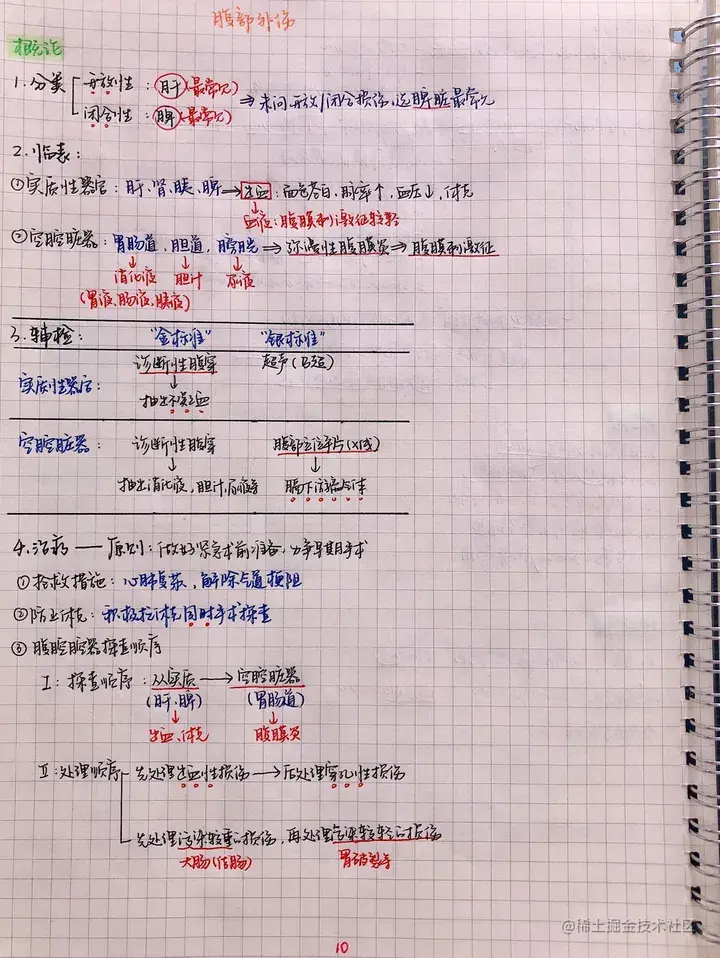 腹部外伤
概论
1.分类 开放性：肝(最常见)
闭合性：脾(最常见) ⇒ 未问开放/闭合损伤，选脾脏最常见
2.临表：
①实质性器官：肝、肾、胰、脾 → 出血：面色苍白，脉率↑，血压↓，休克
↓
血液：腹膜刺激征较轻
②空腔脏器：胃肠道，胆道，膀胱 ⇒ 弥漫性腹膜炎 ⇒ 腹膜刺激征
↓ ↓ ↓
消化液 胆汁 尿液
(胃液、肠液、胰液)
3.辅检： "金标准" "银标准"
诊断性腹穿 超声(B超)
实质性器官： ↓
抽出不凝血
空腔脏器： 诊断性腹穿 腹部立位平片(X线)
↓ ↓
抽出消化液，胆汁，尿液等 膈下游离气体
4.治疗 — 原则：做好紧急术前准备，力争早期手术
①抢救措施：心肺复苏，解除气道梗阻
②防止休克：积极抗休克同时手术探查
③腹腔脏器探查顺序
I：探查顺序：从实质 → 空腔脏器
(肝、脾) (胃肠道)
↓ ↓
出血、休克 腹膜炎
II：处理顺序 先处理出血性损伤 → 后处理穿孔性损伤
先处理污染较重的损伤，再处理污染较轻的损伤
大肠(结肠) 胃破裂等
10
@稀土掘金技术社区